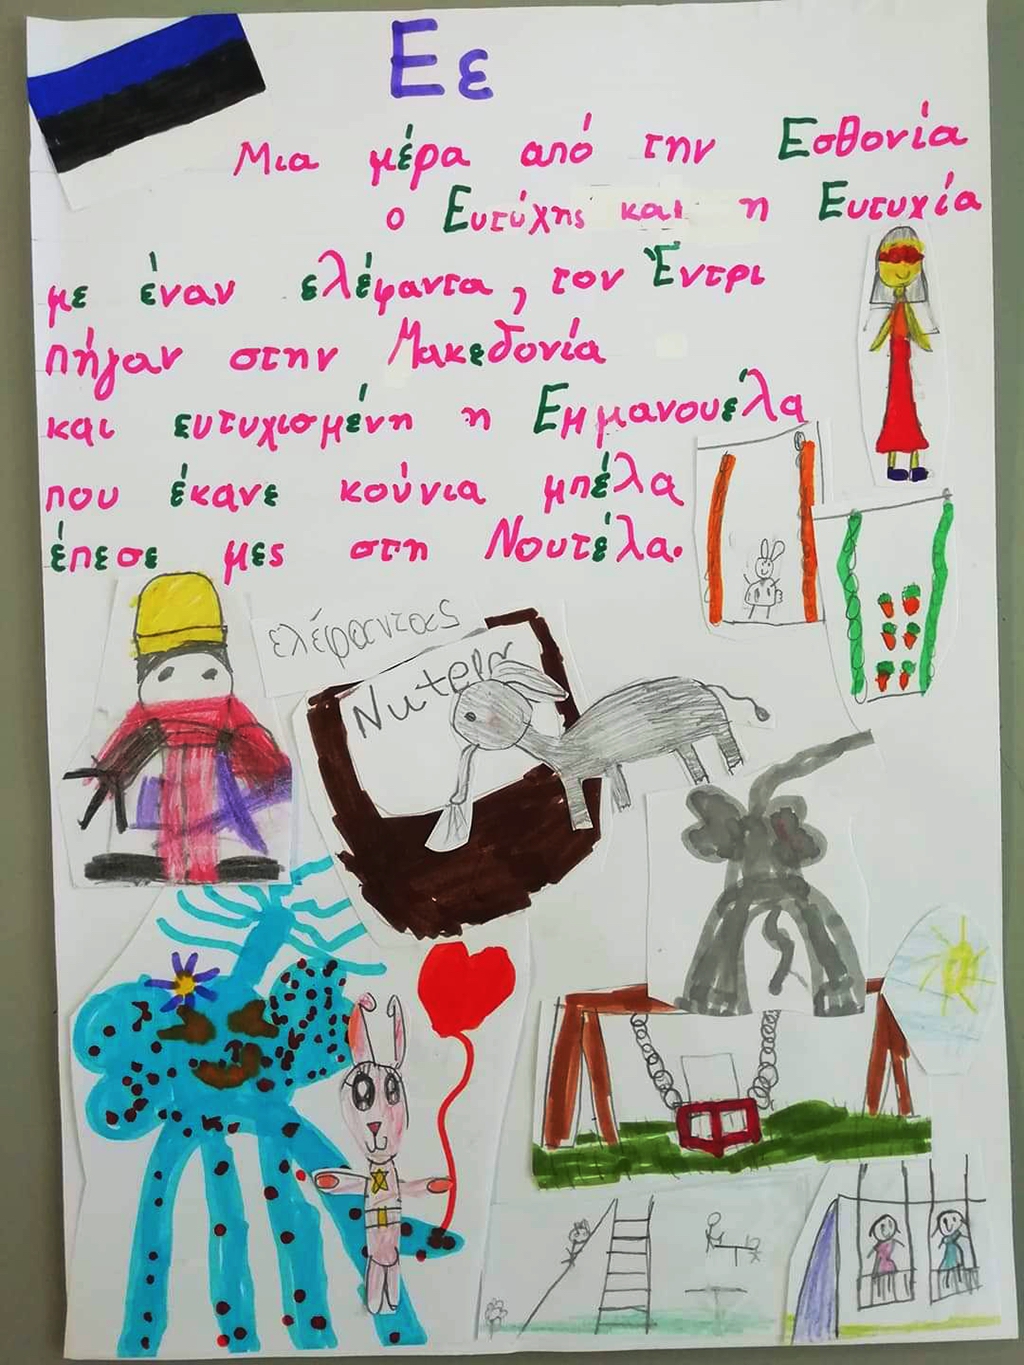 Ε ε
Μια μέρα από την Εσθονία
ο Ευτύχης και η Ευτυχία
με έναν ελέφαντα, τον Έντρι
πήγαν στην Μακεδονία
και ευτυχισμένη η Εμμανουέλα
που έκανε κούνια μπέλα
έπεσε μες στη Νουτέλα.
ελέφαντας
Nutella